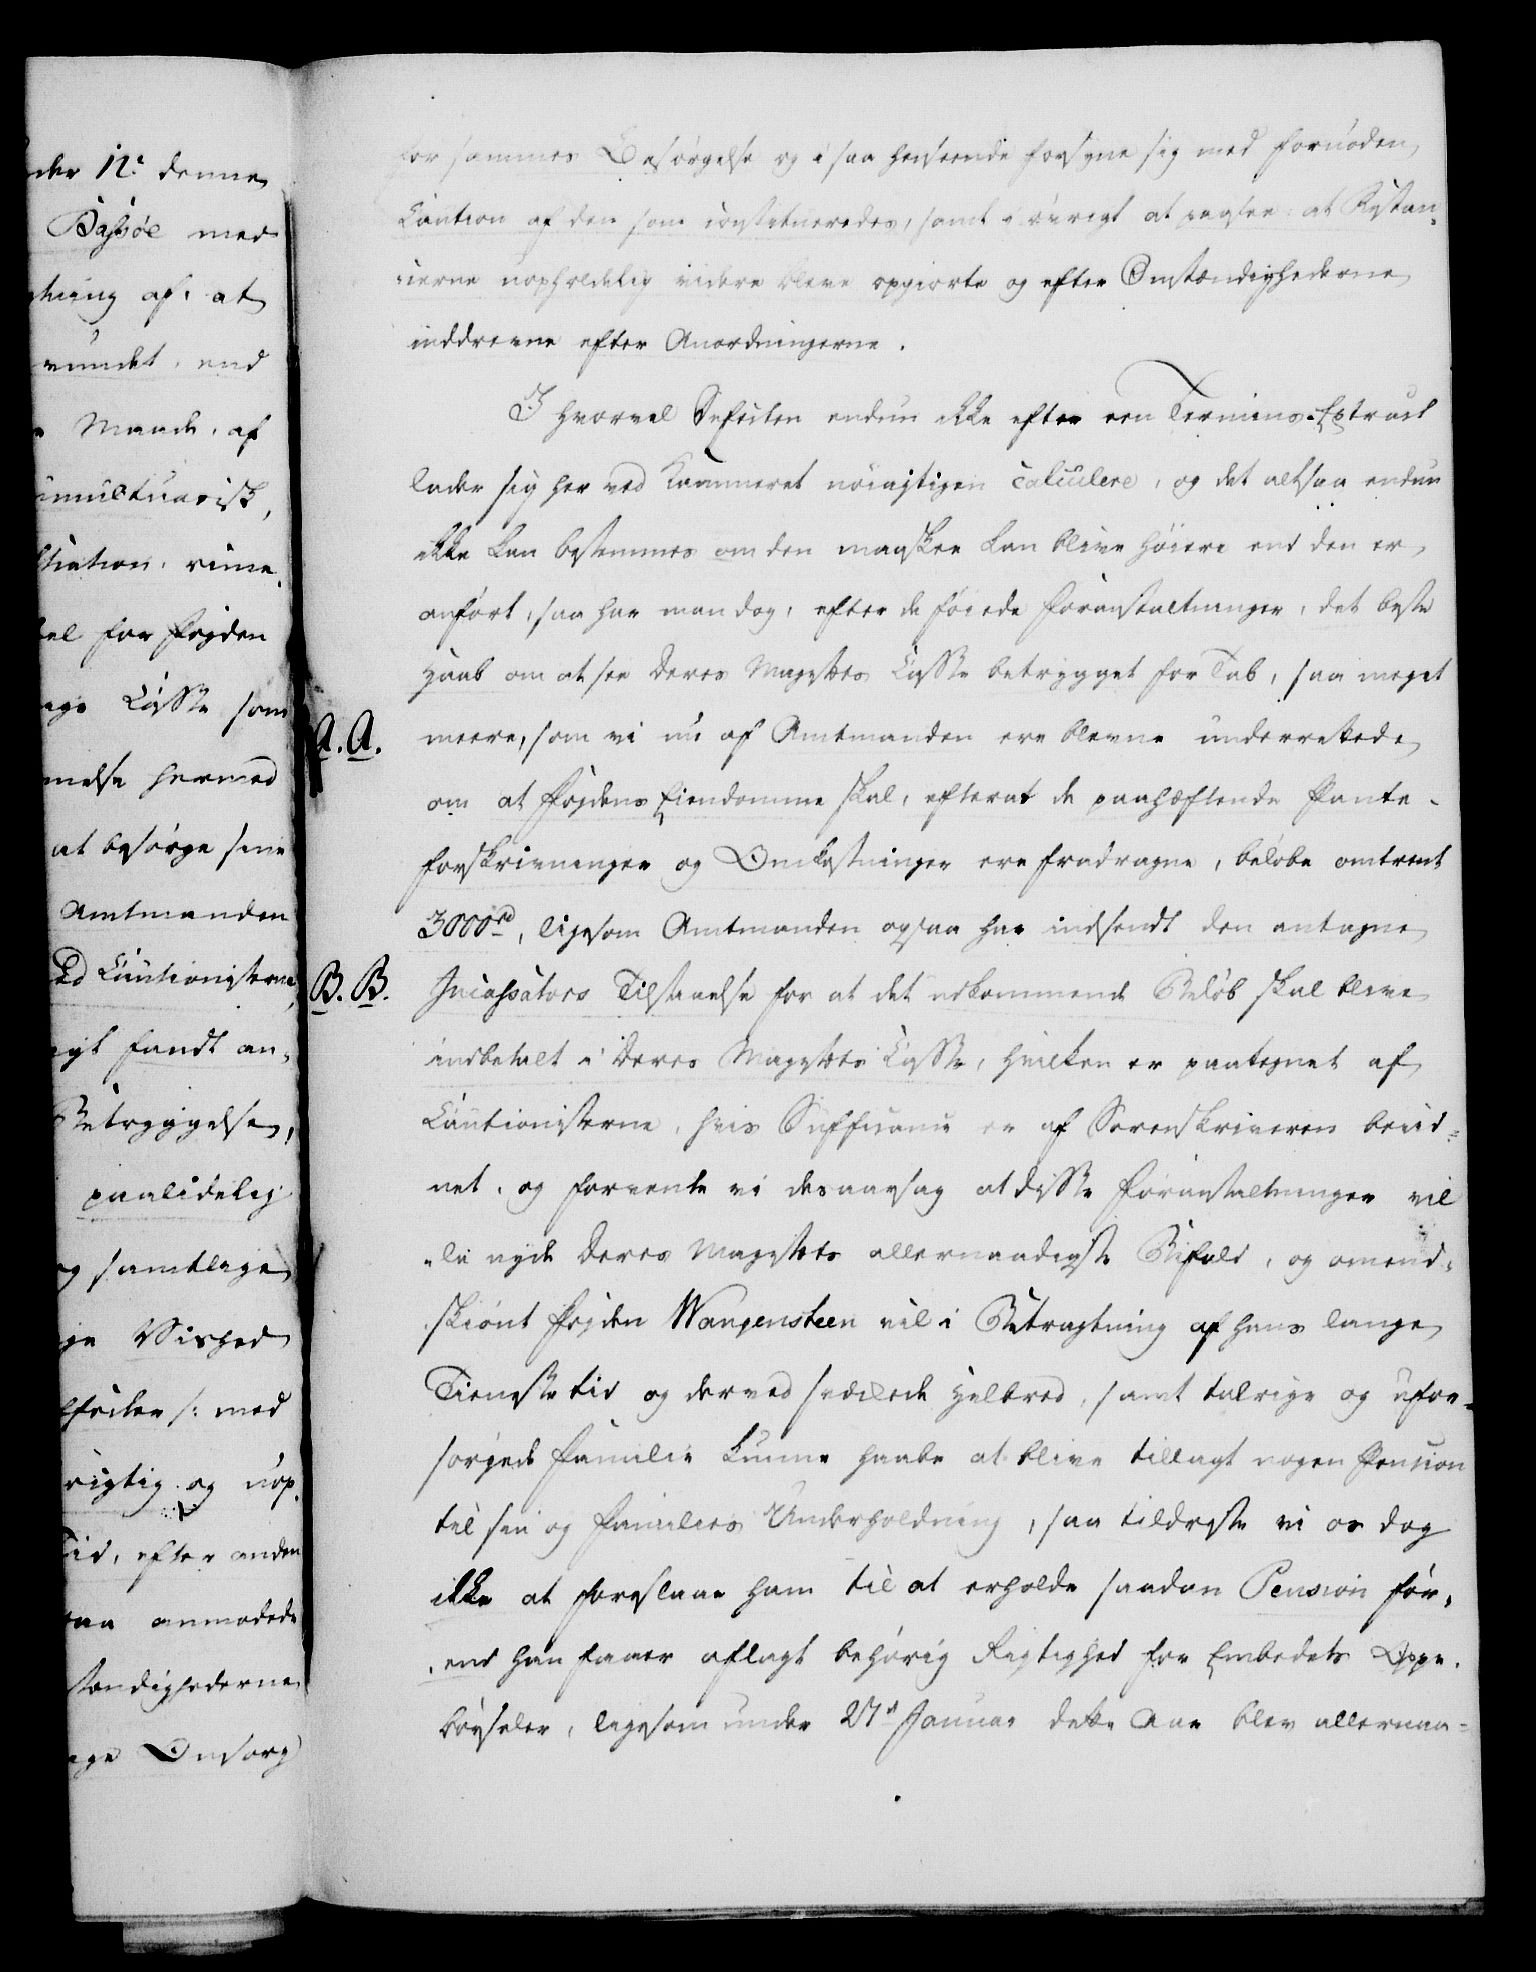 nder 12te denne
Bassøe med
tning af, at
vundet, end
Maade, af
umultuarisk,
tel for Fogden
age Cassa som
melse hermed
at besørge sine
Amtmanden
ed Cautionisterne
igt fandt an-
Betryggelse,
paalidelig
og samtlige
ge Vished
rigtig og uop-
Tid, efter anden
saa anmodede
stændighederne
ige Omsorg
for sammes Besørgelse og i saa henseende forsyne sig med fornøden
Caution af den som constitueredes, samt i øvrigt at paasee at Restan-
cerne uopholdelig videre bleve opgiorte og efter Omstændighederne
inddrevne efter Anordningerne.
I hvorvel Defecten endnu ikke efter een Termins-Extract
lader sig her ved Kammeret nøiagtigen calculere, og det altsaa endnu
ikke kan bestemmes om den maaskee kan blive høiere end den er
anført, saa har man dog, efter de føiede Foranstaltninger, det beste
Haab om at see Deres Majestæts Casse betrygget for Tab, saa meget
A. A.
meere, som vi nu af Amtmanden ere blevne underrettede
om at Fogdens Eiendomme skal, efterat de paahæftende Pante-
forskrivninger og Omkostninger ere fradragne, beløbe omtrent
3000rd, ligesom Amtmanden ogsaa har indsendt den antagne
B. B.
Incassators Tilstaaelse for at det udkommende Beløb skal blive
indbetalt i Deres Majestæts Casse, hvilken er paategnet af
Cautionisterne, hvis Sufficance er af Sorenskriveren bevid-
net, og forvente vi desaarsag at disse Foranstaltninger vil
-le nyde Deres Majestæts allernaadigste Bifald, og omend-
skiønt Fogden Wangensteen vel i Betragtning af hans lange
Tieneste tid og derved svækkede Helbred, samt talrige og ufor-
sørgede Familie kunne haabe at blive tillagt nogen Pension
til sin og Families Underholdning, saa tildriste vi os dog
ikke at foreslaae ham til at erholde saadan Pension før-
end han faaer aflagt behørig Rigtighed for Embedets Oppe-
børseler, ligesom under 27de Januar dette Aar blev allernaa-